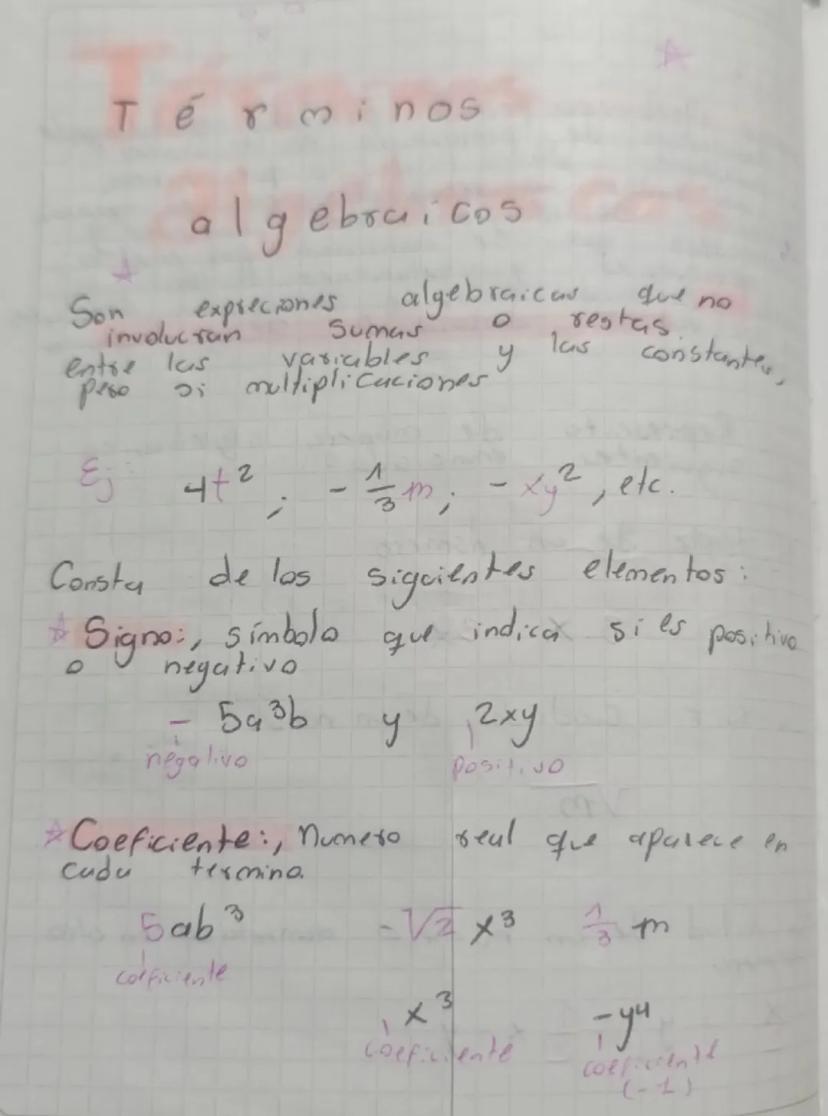 Términos
algebraicos
Son expreciones algebraicas que no
involucran sumas o restas
entre las variables y las constantes,
pero si multiplicaciones
Ej 4t²; - 1/3 m; - xy², etc.
Consta de los siguientes elementos:
Signo:, símbolo que indica si es positivo
o negativo
- 5a³b y 2xy
negativo positivo
Coeficiente:, Numero real que aparece en
cada termino.
5ab³ -√2 x³ 1/3 m
coeficiente
x³ -y⁴
coeficiente coeficiente
(-1)